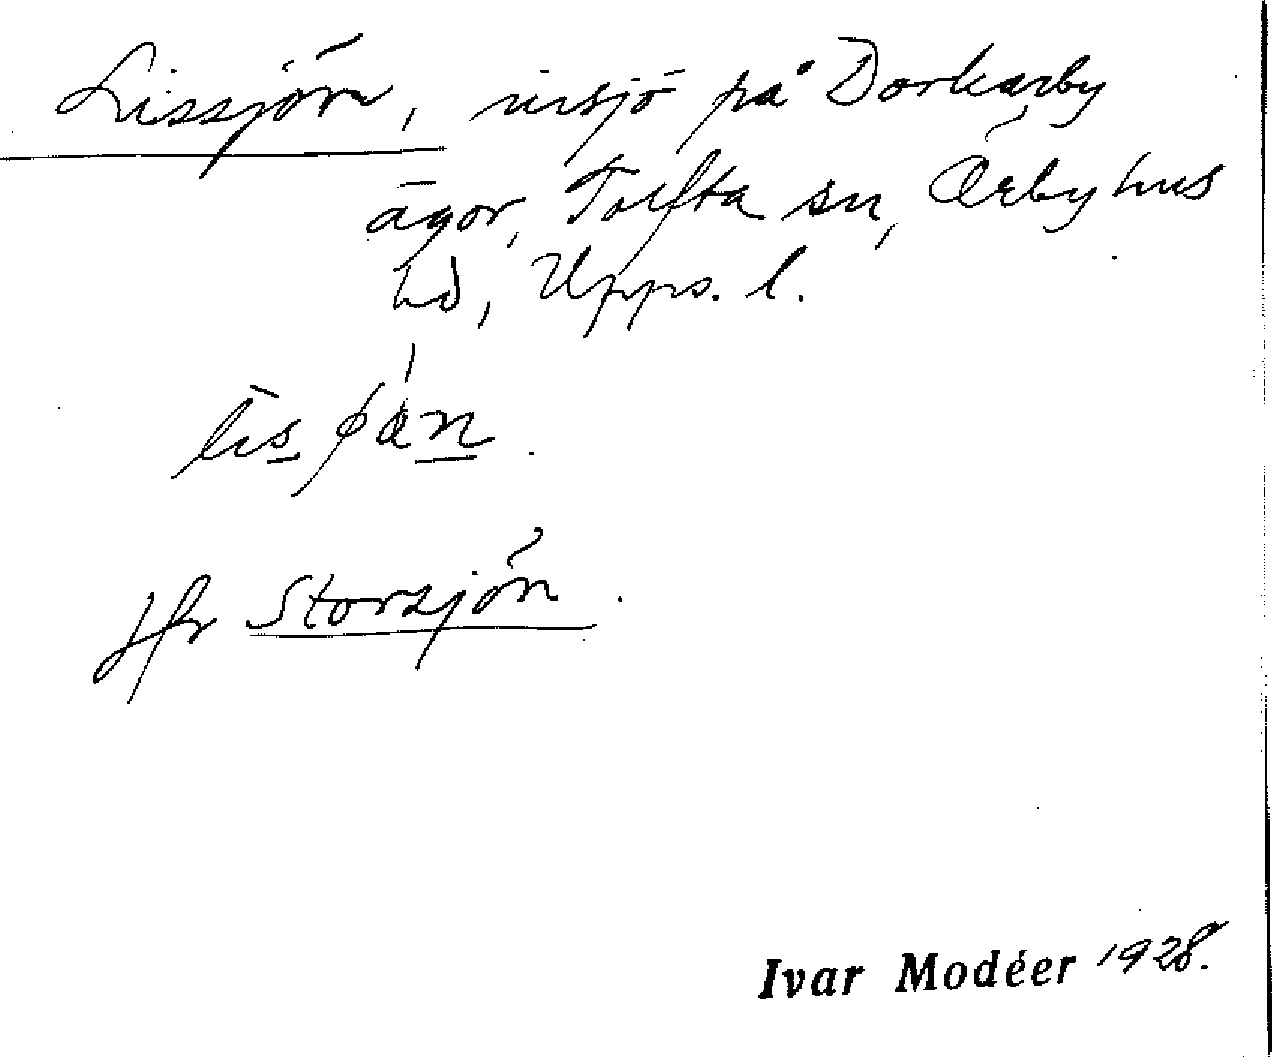 Lissjön, insjö på Dorkarby
ägor, Tolfta sn, Örbyhus
hd, Upps. l.
Jfr Storsjön.
Ivar Modéer 1928.